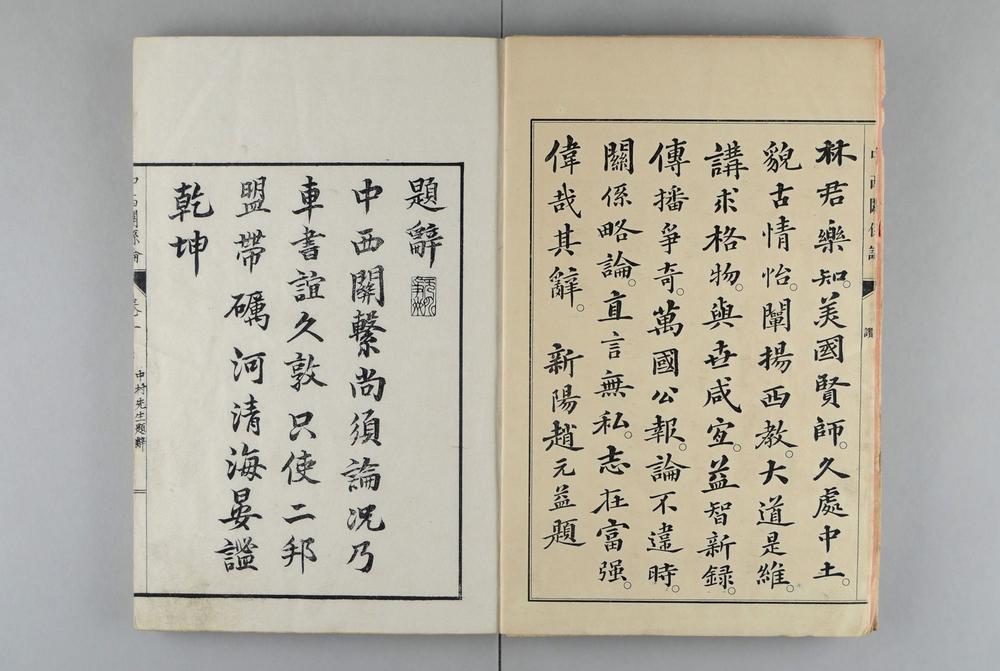 林君樂知。美國賢師。久處中土。
貌古情怡。闡揚西教。大道是維。
講求格物。與世咸宜。益智新録。
傳播爭奇。萬國公報。論不違時。
關係略論。直言無私。志在富强。
偉哉其辭。 新陽趙元益題
讚
題辭
中西關繫尚須論況乃
車書誼久敦只使二邦
盟帶礪河清海晏謐
乾坤
中西關係論
中村先生題辭